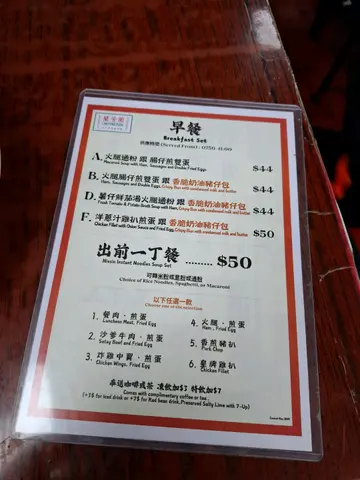 早餐
Breakfast Set
供應時間 (Served From) : 0730-11:00
A. 火腿通粉 跟 腸仔煎雙蛋 $44
Macaroni Soup with Ham, Sausages and Double Fried Eggs
B. 火腿腸仔煎雙蛋 跟 香脆奶油豬仔包 $44
Ham, Sausages and Double Eggs, Crispy Bun with condensed milk and butter
D. 薯仔鮮茄湯火腿通粉 跟 香脆奶油豬仔包 $44
Fresh Tomato & Potato Broth Soup with Ham, Crispy Bun with condensed milk and butter
F. 洋蔥汁雞扒煎蛋 跟 香脆奶油豬仔包 $50
Chicken Fillet with Onion Sauce and Fried Egg, Crispy Bun with condensed milk and butter
出前一丁餐 ......... $50
Nissin Instant Noodles Soup Set
可轉米粉或意粉或通粉
Choice of Rice Noodles, Spaghetti, or Macaroni
以下任選一款
Choose one of the selection
1. 餐肉・煎蛋
Luncheon Meat, Fried Egg
2. 沙爹牛肉・煎蛋
Satay Beef and Fried Egg
3. 炸雞中翼・煎蛋
Chicken Wings, Fried Egg
4. 火腿・煎蛋
Ham, Fried Egg
5. 香煎豬扒
Pork Chop
6. 皇牌雞扒
Chicken Fillet
奉送咖啡或茶 凍飲加$3 特飲加$7
Comes with complimentary coffee or tea
(+3$ for iced drink or +7$ for Red bean drink, Preserved Salty Lime with 7-Up)